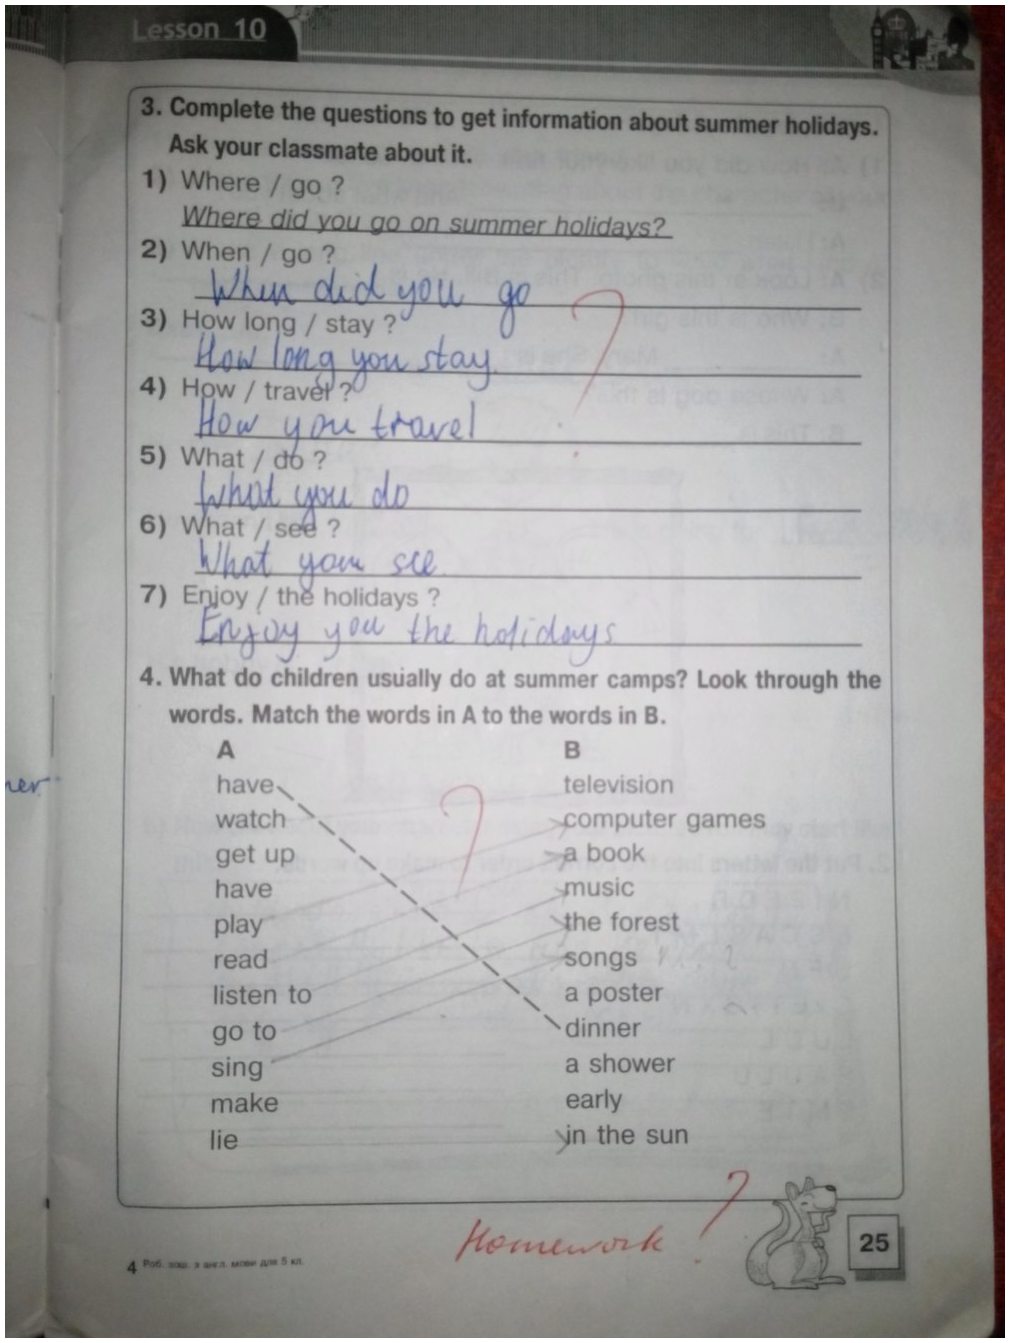 Lesson 10
3. Complete the questions to get information about summer holidays.
Ask your classmate about it.
1) Where / go ?
Where did you go on summer holidays?
2) When / go ?
When did you go
3) How long / stay ?
How long you stay
?
4) How / travel ?
How you travel
5) What / do ?
What you do
6) What / see ?
What you see
7) Enjoy / the holidays ?
Enjoy you the holidays
4. What do children usually do at summer camps? Look through the
words. Match the words in A to the words in B.
A B
have television
watch computer games
get up a book
?
have music
play the forest
read songs
listen to a poster
go to dinner
sing a shower
make early
lie in the sun
Homework ?
25
4 Роб. зош. з англ. мови для 5 кл.